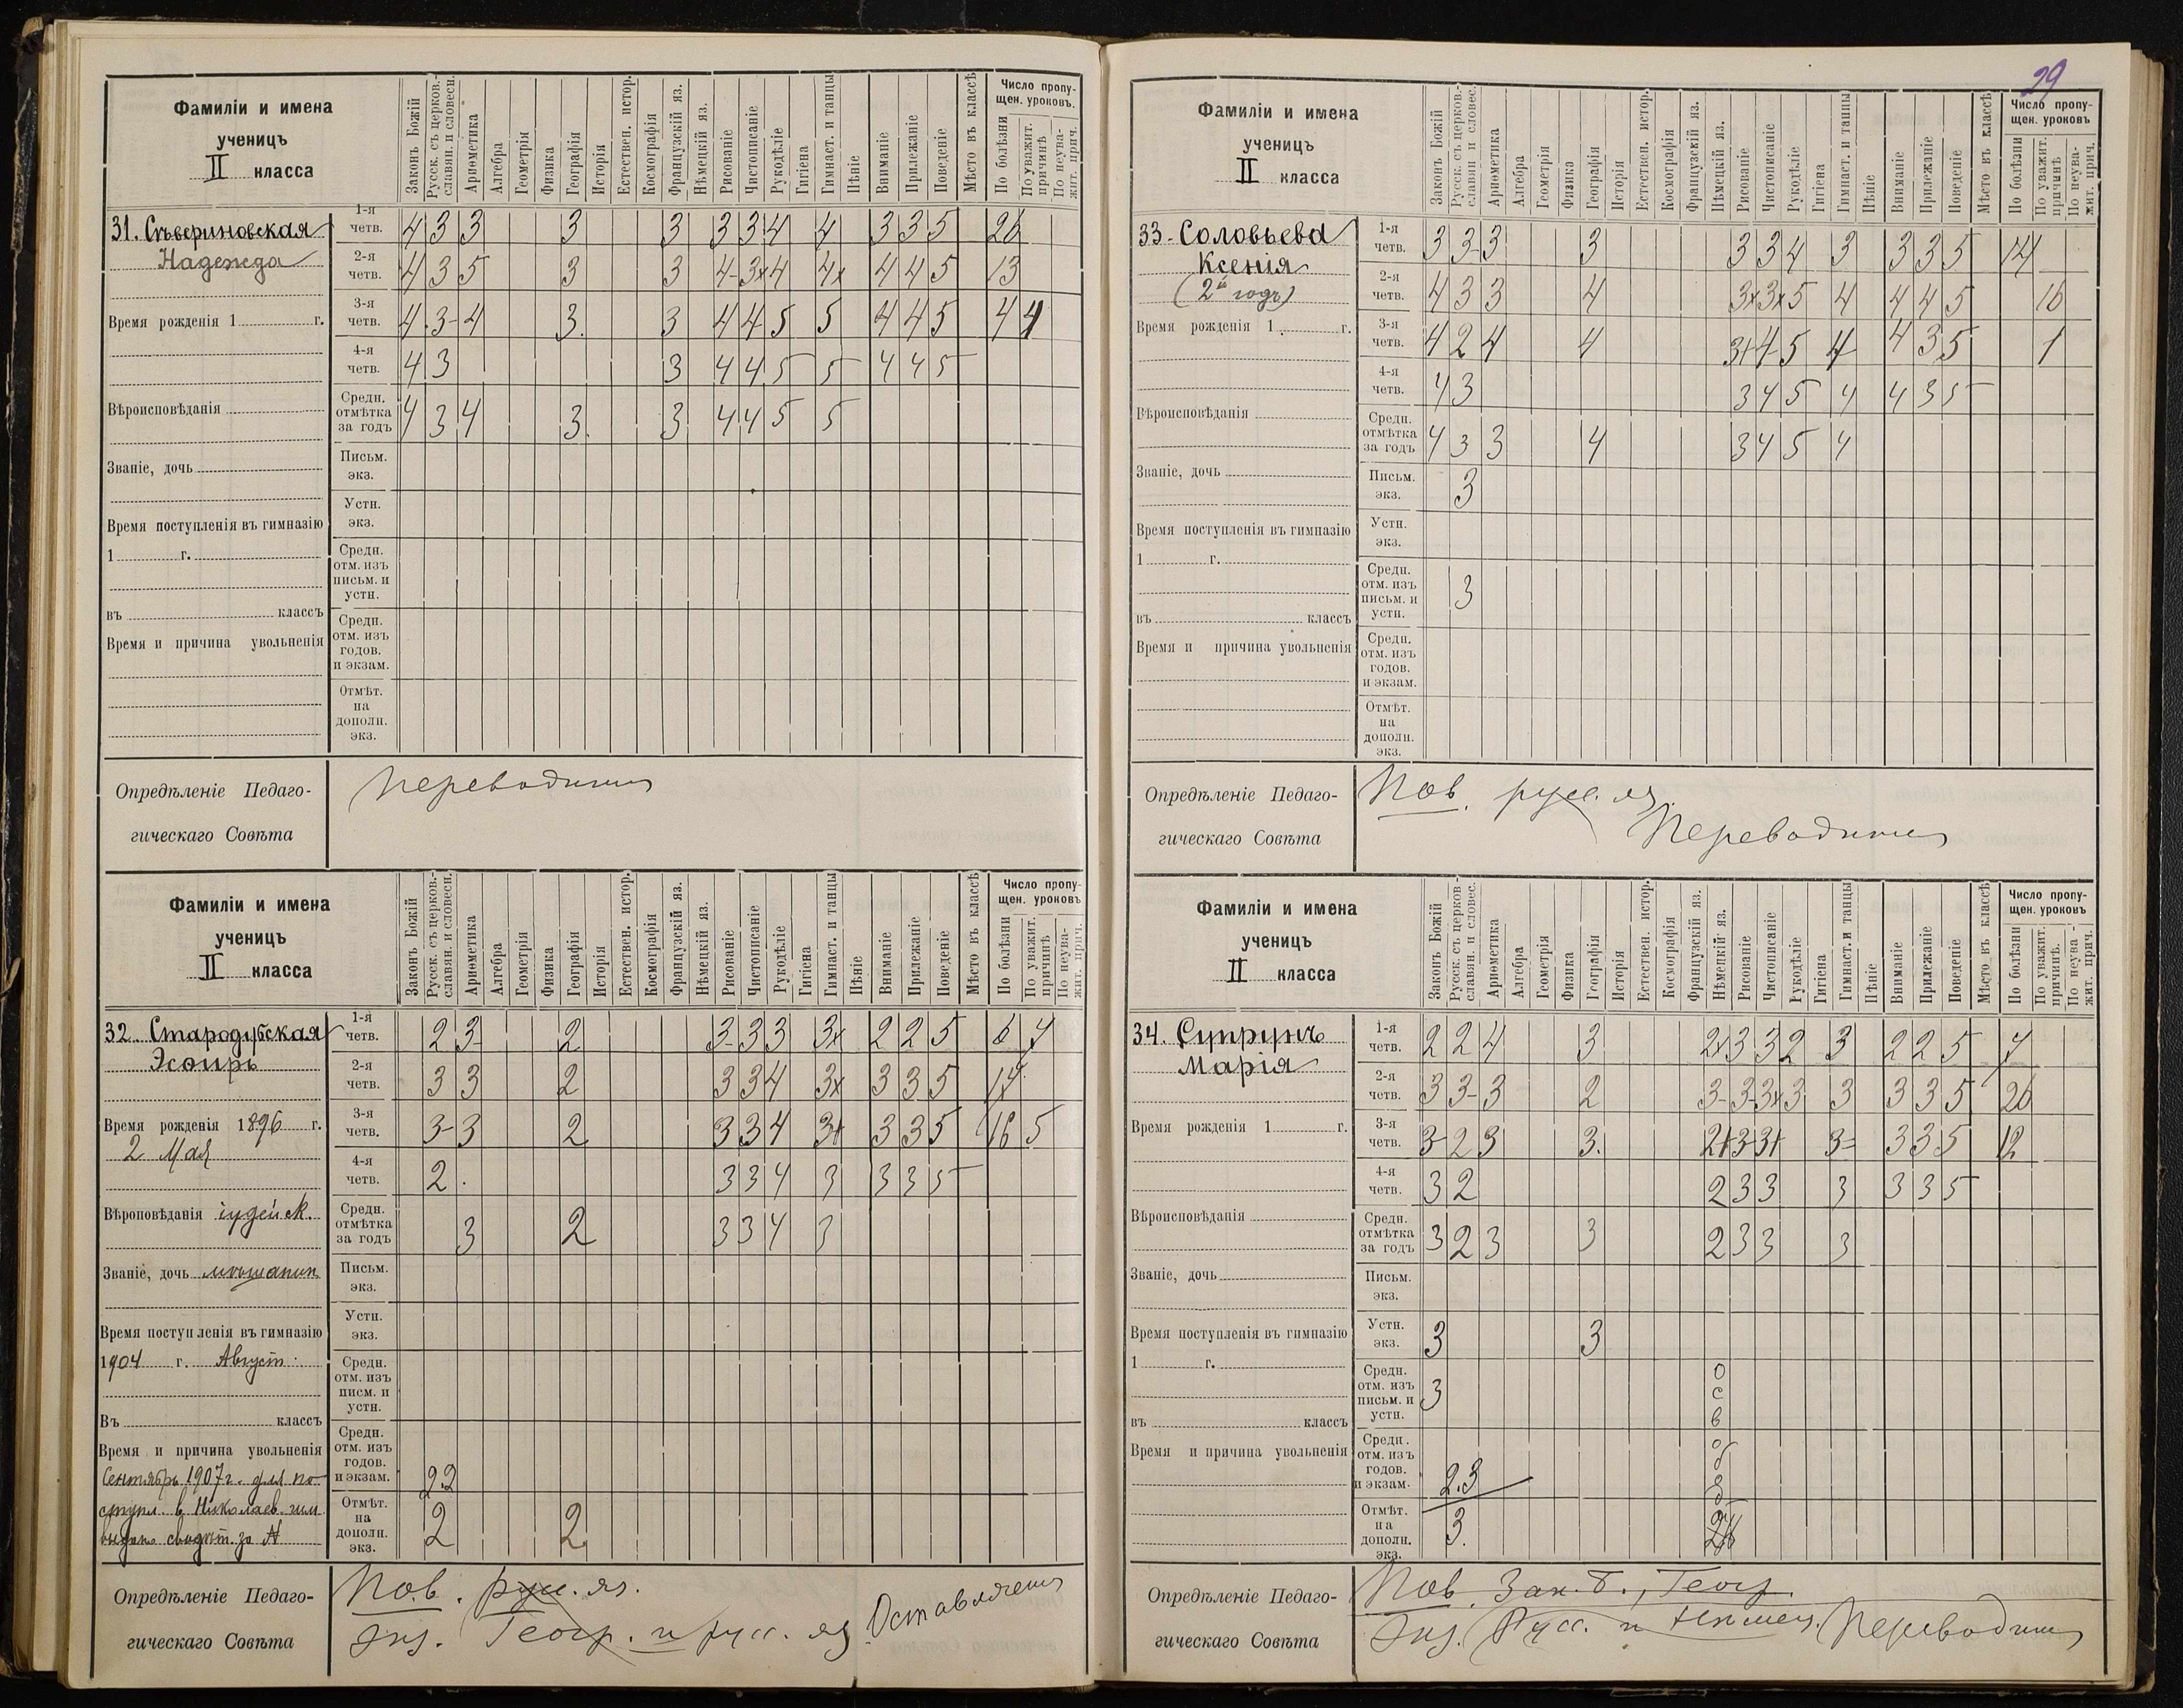 29
Фамиліи и имена
ученицъ
II класса
Законъ Божій
Русск. съ церков.-славян. и словесн.
Ариѳметика
Алгебра
Геометрія
Физика
Географія
Исторія
Естествен. истор.
Космографія
Французскій яз.
Нѣмецкій яз.
Рисованіе
Чистописаніе
Рукодѣліе
Гигіена
Гимнаст. и танцы
Пѣніе
Вниманіе
Прилежаніе
Поведеніе
Мѣсто въ классѣ
Число пропу-
щен. уроковъ.
По болѣзни
По уважит. причинѣ
По неува-жит. прич.
31. Сѣвериновская
Надежда
Время рожденія 1 г.
Вѣроисповѣданія
Званіе, дочь
Время поступленія въ гимназію
1 г.
въ классъ
Время и причина увольненія
1-я четв. 4 3 3 3 3 3 3 4 4 3 3 5 26
2-я четв. 4 3 5 3 3 4- 3+ 4 4+ 4 4 5 13
3-я четв. 4. 3- 4 3. 3 4 4 5 5 4 4 5 4 4
4-я четв. 4 3 3 4 4 5 5 4 4 5
Средн. отмѣтка за годъ 4 3 4 3. 3 4 4 5 5
Письм. экз.
Устн. экз.
Средн. отм. изъ письм. и устн.
Средн. отм. изъ годов. и экзам.
Отмѣт. на дополн. экз.
Опредѣленіе Педаго-
гическаго Совѣта
Переводится
Фамиліи и имена
ученицъ
II класса
Законъ Божій
Русск. съ церков.-славян. и словесн.
Ариѳметика
Алгебра
Геометрія
Физика
Географія
Исторія
Естествен. истор.
Космографія
Французскій яз.
Нѣмецкій яз.
Рисованіе
Чистописаніе
Рукодѣліе
Гигіена
Гимнаст. и танцы
Пѣніе
Вниманіе
Прилежаніе
Поведеніе
Мѣсто въ классѣ
Число пропу-
щен. уроковъ
По болѣзни
По уважит. причинѣ
По неува-жит. прич.
32. Стародубская
Эсѳирь
Время рожденія 1896 г.
2 Мая
Вѣроповѣданія іудейск.
Званіе, дочь мѣщанин
Время поступленія въ гимназію
1904 г. Август
Въ классъ
Время и причина увольненія
Сентябрь 1907 г. для по
ступл. в Николаев. гим.
выдано свидѣт. за №
1-я четв. 2 3- 2 3- 3 3 3+ 2 2 5 6 7
2-я четв. 3 3 2 3 3 4 3+ 3 3 5 17
3-я четв. 3- 3 2 3 3 4 3+ 3 3 5 16 5
4-я четв. 2. 3 3 4 3 3 3 5
Средн. отмѣтка за годъ 3 2 3 3 4 3
Письм. экз.
Устн. экз.
Средн. отм. изъ писм. и устн.
Средн. отм. изъ годов. и экзам. 2.2
Отмѣт. на дополн. экз. 2 2
Опредѣленіе Педаго-
гическаго Совѣта
Пов. русс. яз.
Экз. Геогр. и русс. яз Оставляется
Фамиліи и имена
ученицъ
II класса
Законъ Божій
Русск. съ церков.-славян и словес.
Ариѳметика
Алгебра
Геометрія
Физика
Географія
Исторія
Естествен. истор.
Космографія
Французскій яз.
Нѣмецкій яз.
Рисованіе
Чистописаніе
Рукодѣліе
Гигіена
Гимнаст. и танцы
Пѣніе
Вниманіе
Прилежаніе
Поведеніе
Мѣсто въ классѣ
Число пропу-
щен. уроковъ
По болѣзни
По уважит. причинѣ
По неува-жит. прич.
33- Соловьева
Ксенія
(2й годъ)
Время рожденія 1 г.
Вѣроисповѣданія
Званіе, дочь
Время поступленія въ гимназію
1 г.
въ классъ
Время и причина увольненія
1-я четв. 3 3- 3 3 3 3 4 3 3 3 5 14
2-я четв. 4 3 3 4 3+ 3+ 5 4 4 4 5 16
3-я четв. 4 2 4 4 3+ 4 5 4 4 3 5 1
4-я четв. 4 3 3 4 5 4 4 3 5
Средн. отмѣтка за годъ 4 3 3 4 3 4 5 4
Письм. экз. 3
Устн. экз.
Средн. отм. изъ письм. и устн. 3
Средн. отм. изъ годов. и экзам.
Отмѣт. на дополн. экз.
Опредѣленіе Педаго-
гическаго Совѣта
Пов. русс. яз.
Переводится
Фамиліи и имена
ученицъ
II класса
Законъ Божій
Русск. съ церков-славян. и словес.
Ариѳметика
Алгебра
Геометрія
Физика
Географія
Исторія
Естествен. истор.
Космографія
Французскій яз.
Нѣмецкій яз.
Рисованіе
Чистописаніе
Рукодѣліе
Гигіена
Гимнаст. и танцы
Пѣніе
Вниманіе
Прилежаніе
Поведеніе
Мѣсто въ классѣ
Число пропу-
щен. уроковъ
По болѣзни
По уважит. причинѣ.
По неува-жит. прич.
34. Супрунъ
Марія
Время рожденія 1 г.
Вѣроисповѣданія
Званіе, дочь
Время поступленія въ гимназію
1 г.
въ классъ
Время и причина увольненія
1-я четв. 2 2 4 3 2+ 3 3 2 3 2 2 5 7
2-я четв. 3 3- 3 2 3- 3- 3+ 3 3 3 3 5 26
3-я четв. 3- 2 3 3. 2+ 3 3+ 3= 3 3 5 12
4-я четв. 3 2 2 3 3 3 3 3 5
Средн. отмѣтка за годъ 3 2 3 3 2 3 3 3
Письм. экз.
Устн. экз. 3 3
Средн. отм. изъ письм. и устн. 3
Средн. отм. изъ годов. и экзам. 2.3
Отмѣт. на дополн. экз. 3.
Опредѣленіе Педаго-
гическаго Совѣта
Пов. Зак. Б., Геогр.
Экз. Русс. и нѣмец. Переводится